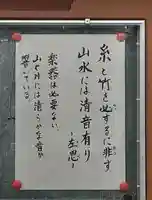 糸と竹を必ずするに非ず
山水には清音有り
-左思-
楽器は必要ない。
山や川には清らかな音が
響いている